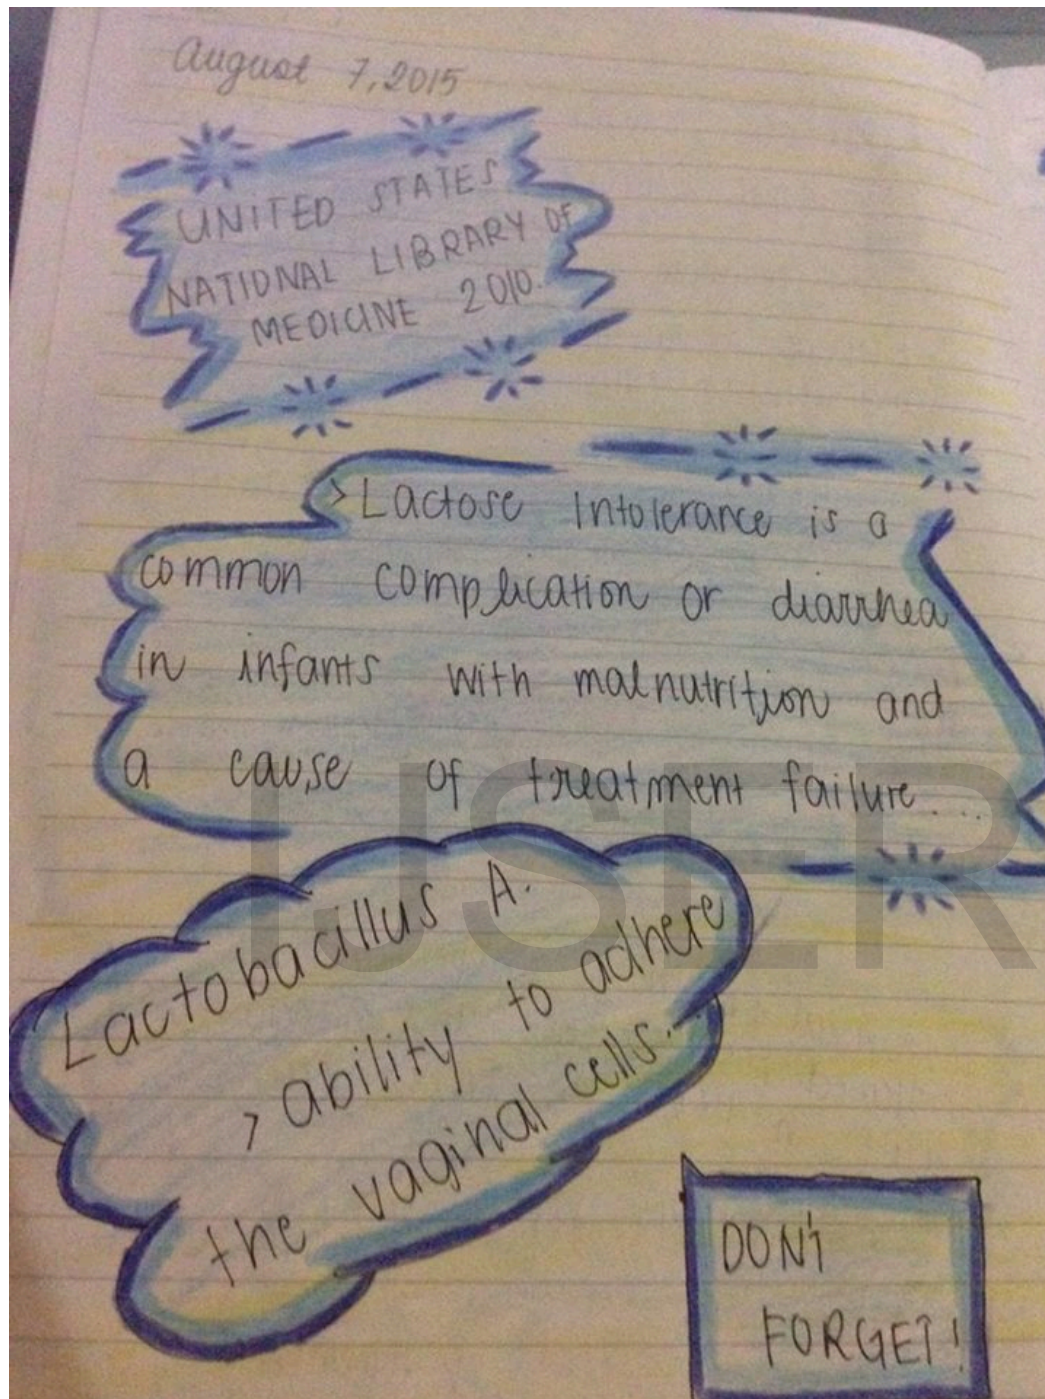 August 7, 2015
UNITED STATES
NATIONAL LIBRARY OF
MEDICINE 2010.
> Lactose Intolerance is a
common complication or diarrhea
in infants with malnutrition and
a cause of treatment failure...
IJSER
Lactobacillus A.
> ability to adhere
the vaginal cells.
DON'T
FORGET!